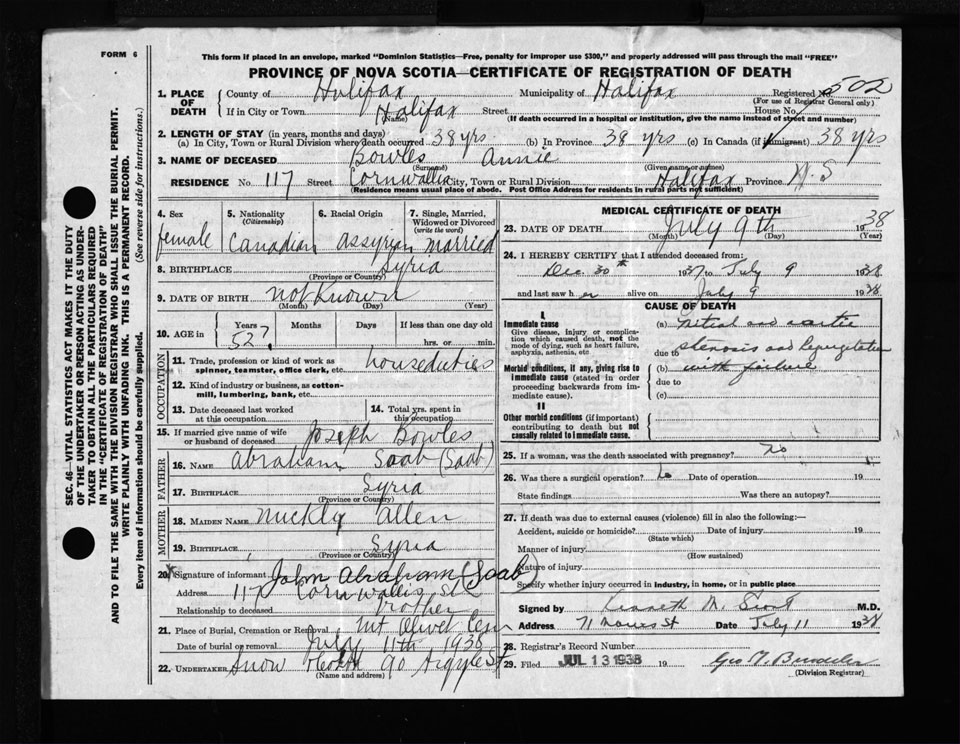 FORM 6
This form if placed in an envelope, marked "Dominion Statistics—Free, penalty for improper use $300," and properly addressed will pass through the mail "FREE"
PROVINCE OF NOVA SCOTIA—CERTIFICATE OF REGISTRATION OF DEATH
SEC. 46—VITAL STATISTICS ACT MAKES IT THE DUTY
OF THE UNDERTAKER OR PERSON ACTING AS UNDER-
TAKER TO OBTAIN ALL THE PARTICULARS REQUIRED
IN THE "CERTIFICATE OF REGISTRATION OF DEATH"
AND TO FILE THE SAME WITH THE DIVISION REGISTRAR WHO SHALL ISSUE THE BURIAL PERMIT.
WRITE PLAINLY WITH UNFADING INK. THIS IS A PERMANENT RECORD.
Every item of information should be carefully supplied. (See reverse side for instructions.)
1. PLACE OF DEATH County of Halifax Municipality of Halifax Registered No 502
(For use of Registrar General only)
If in City or Town Halifax Street House No.
(Name) (If death occurred in a hospital or institution, give the name instead of street and number)
2. LENGTH OF STAY (in years, months and days)
(a) In City, Town or Rural Division where death occurred 38 yrs (b) In Province 38 yrs (c) In Canada (if immigrant) 38 yrs
3. NAME OF DECEASED Bowles Annie
(Surname) (Given name or names)
RESIDENCE No. 117 Street Cornwallis City, Town or Rural Division Halifax Province N.S
(Residence means usual place of abode. Post Office Address for residents in rural parts not sufficient)
4. Sex female
5. Nationality (Citizenship) Canadian
6. Racial Origin assyrian
7. Single, Married, Widowed or Divorced (write the word) married
8. BIRTHPLACE Syria
(Province or Country)
9. DATE OF BIRTH not known
(Month) (Day) (Year)
10. AGE in Years 52? Months Days If less than one day old
hrs. or min.
OCCUPATION
11. Trade, profession or kind of work as spinner, teamster, office clerk, etc. houseduties
12. Kind of industry or business, as cotton-mill, lumbering, bank, etc.
13. Date deceased last worked at this occupation
14. Total yrs. spent in this occupation
15. If married give name of wife or husband of deceased Joseph Bowles
FATHER
16. NAME Abraham Saab (Saab)
17. BIRTHPLACE Syria
(Province or Country)
MOTHER
18. MAIDEN NAME allen
19. BIRTHPLACE Syria
(Province or Country)
20. Signature of informant John Abraham (Saab)
Address 117 Cornwallis St
Relationship to deceased brother
21. Place of Burial, Cremation or Removal Mt Olivet Cem
Date of burial or removal July 11th 1938
22. UNDERTAKER Snow 90 Argyle St
(Name and address)
MEDICAL CERTIFICATE OF DEATH
23. DATE OF DEATH July 9th 1938
(Month) (Day) (Year)
24. I HEREBY CERTIFY that I attended deceased from:
Dec 30th 1937 to July 9 1938
and last saw her alive on July 9 1938
CAUSE OF DEATH
I.
Immediate cause
Give disease, injury or complication which caused death, not the mode of dying, such as heart failure, asphyxia, asthenia, etc
Morbid conditions, if any, giving rise to immediate cause (stated in order proceeding backwards from immediate cause).
II
Other morbid conditions (if important) contributing to death but not causally related to immediate cause.
(a) Mitral and aortic
due to stenosis and Regurgitation
(b) with failure
due to
(c)
25. If a woman, was the death associated with pregnancy? No
26. Was there a surgical operation? No Date of operation 19
State findings Was there an autopsy?
27. If death was due to external causes (violence) fill in also the following:—
Accident, suicide or homicide? Date of injury 19
(State which)
Manner of injury
(How sustained)
Nature of injury
Specify whether injury occurred in industry, in home, or in public place
Signed by Kenneth M. M.D.
Address 71 St Date July 11 1938
28. Registrar's Record Number
29. Filed JUL 13 1938 19
(Division Registrar)